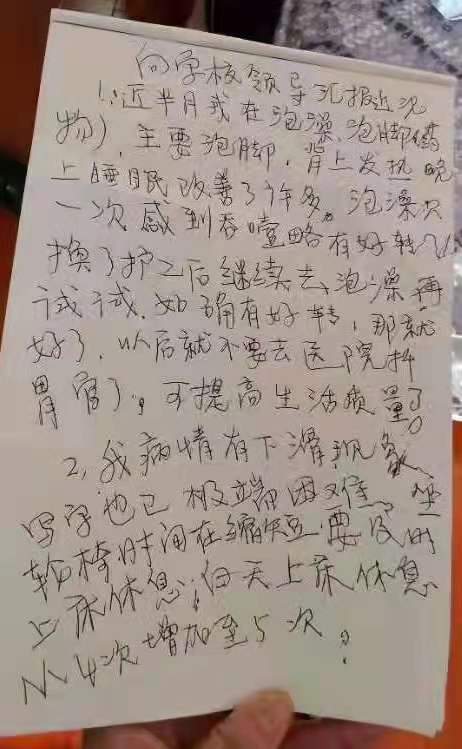 向学校领导汇报近况
1、近半月我在泡澡、泡脚(药
物),主要泡脚,背上发热晚
上睡眠改善了许多。泡澡只
一次感到吞噎略有好转
换了护工后继续去泡澡再
试试,如确有好转,那就
好了,以后就不要去医院插
胃管了,可提高生活质量了。
2、我病情有下滑现象、
写字也已极端困难、坐
轮椅时间在缩短要及时
上床休息,白天上床休息
从4次增加至5次。